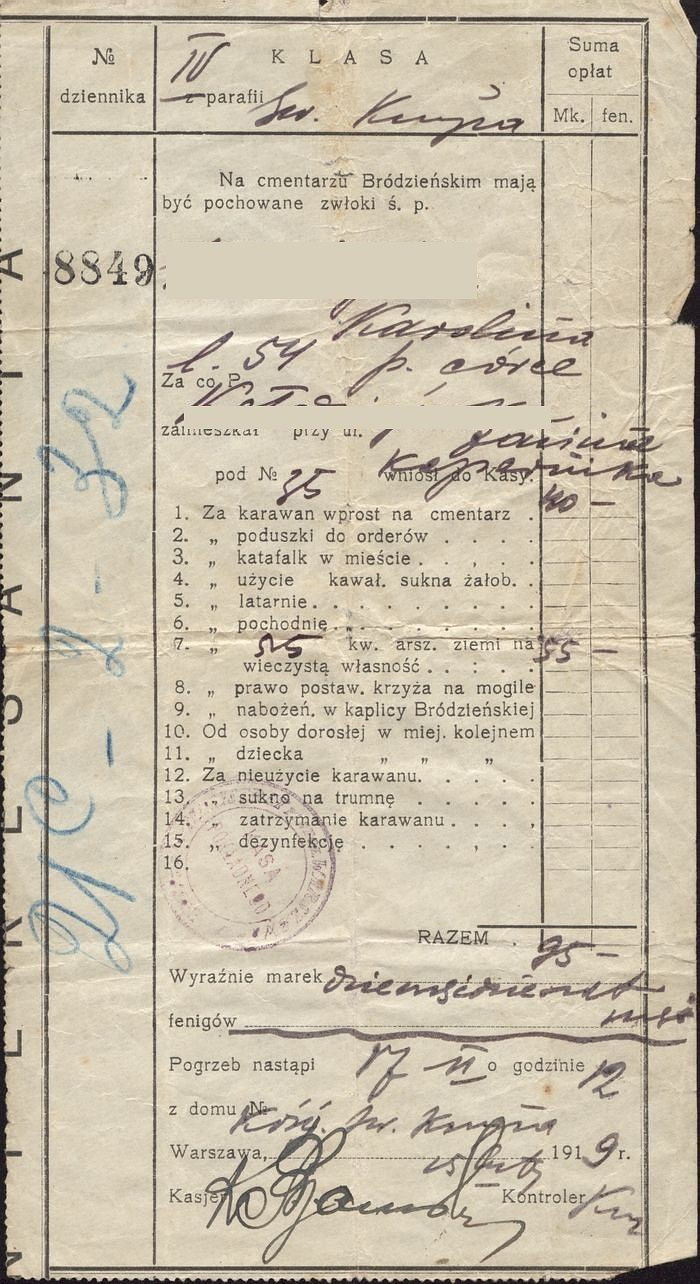 № dziennika
IV KLASA
z parafii Św. Krzyża
Suma opłat
Mk. fen.
8849
Na cmentarzu Bródzieńskim mają
być pochowane zwłoki ś. p.
Karolina
l. 54 p. córce
Za co P.
zamieszkał przy ul.
Kopernika
pod № 35 wniósł do Kasy:
1. Za karawan wprost na cmentarz . 40 —
2. „ poduszki do orderów . . . .
3. „ katafalk w mieście . . . . .
4. „ użycie kawał. sukna żałob. .
5. „ latarnie . . . . . . . . .
6. „ pochodnię . . . . . . . . .
7. „ kw. arsz. ziemi na 55 —
wieczystą własność . . : . .
8. „ prawo postaw. krzyża na mogile
9. „ nabożeń. w kaplicy Bródzieńskiej
10. Od osoby dorosłej w miej. kolejnem
11. „ dziecka „ „ „
12. Za nieużycie karawanu. . . . .
13. „ sukno na trumnę . . . . .
14. „ zatrzymanie karawanu . . . .
15. „ dezynfekcję . . . . . . .
16.
KASA
RAZEM . 95 —
Wyraźnie marek
fenigów
Pogrzeb nastąpi 17 II o godzinie 12
z domu № Kość. Św. Krzyża
Warszawa, 15 luty 1919 r.
Kasjer Kontroler